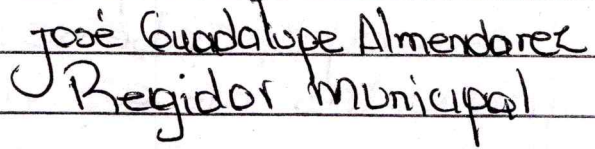 José Guadalupe Almendarez
Regidor Municipal